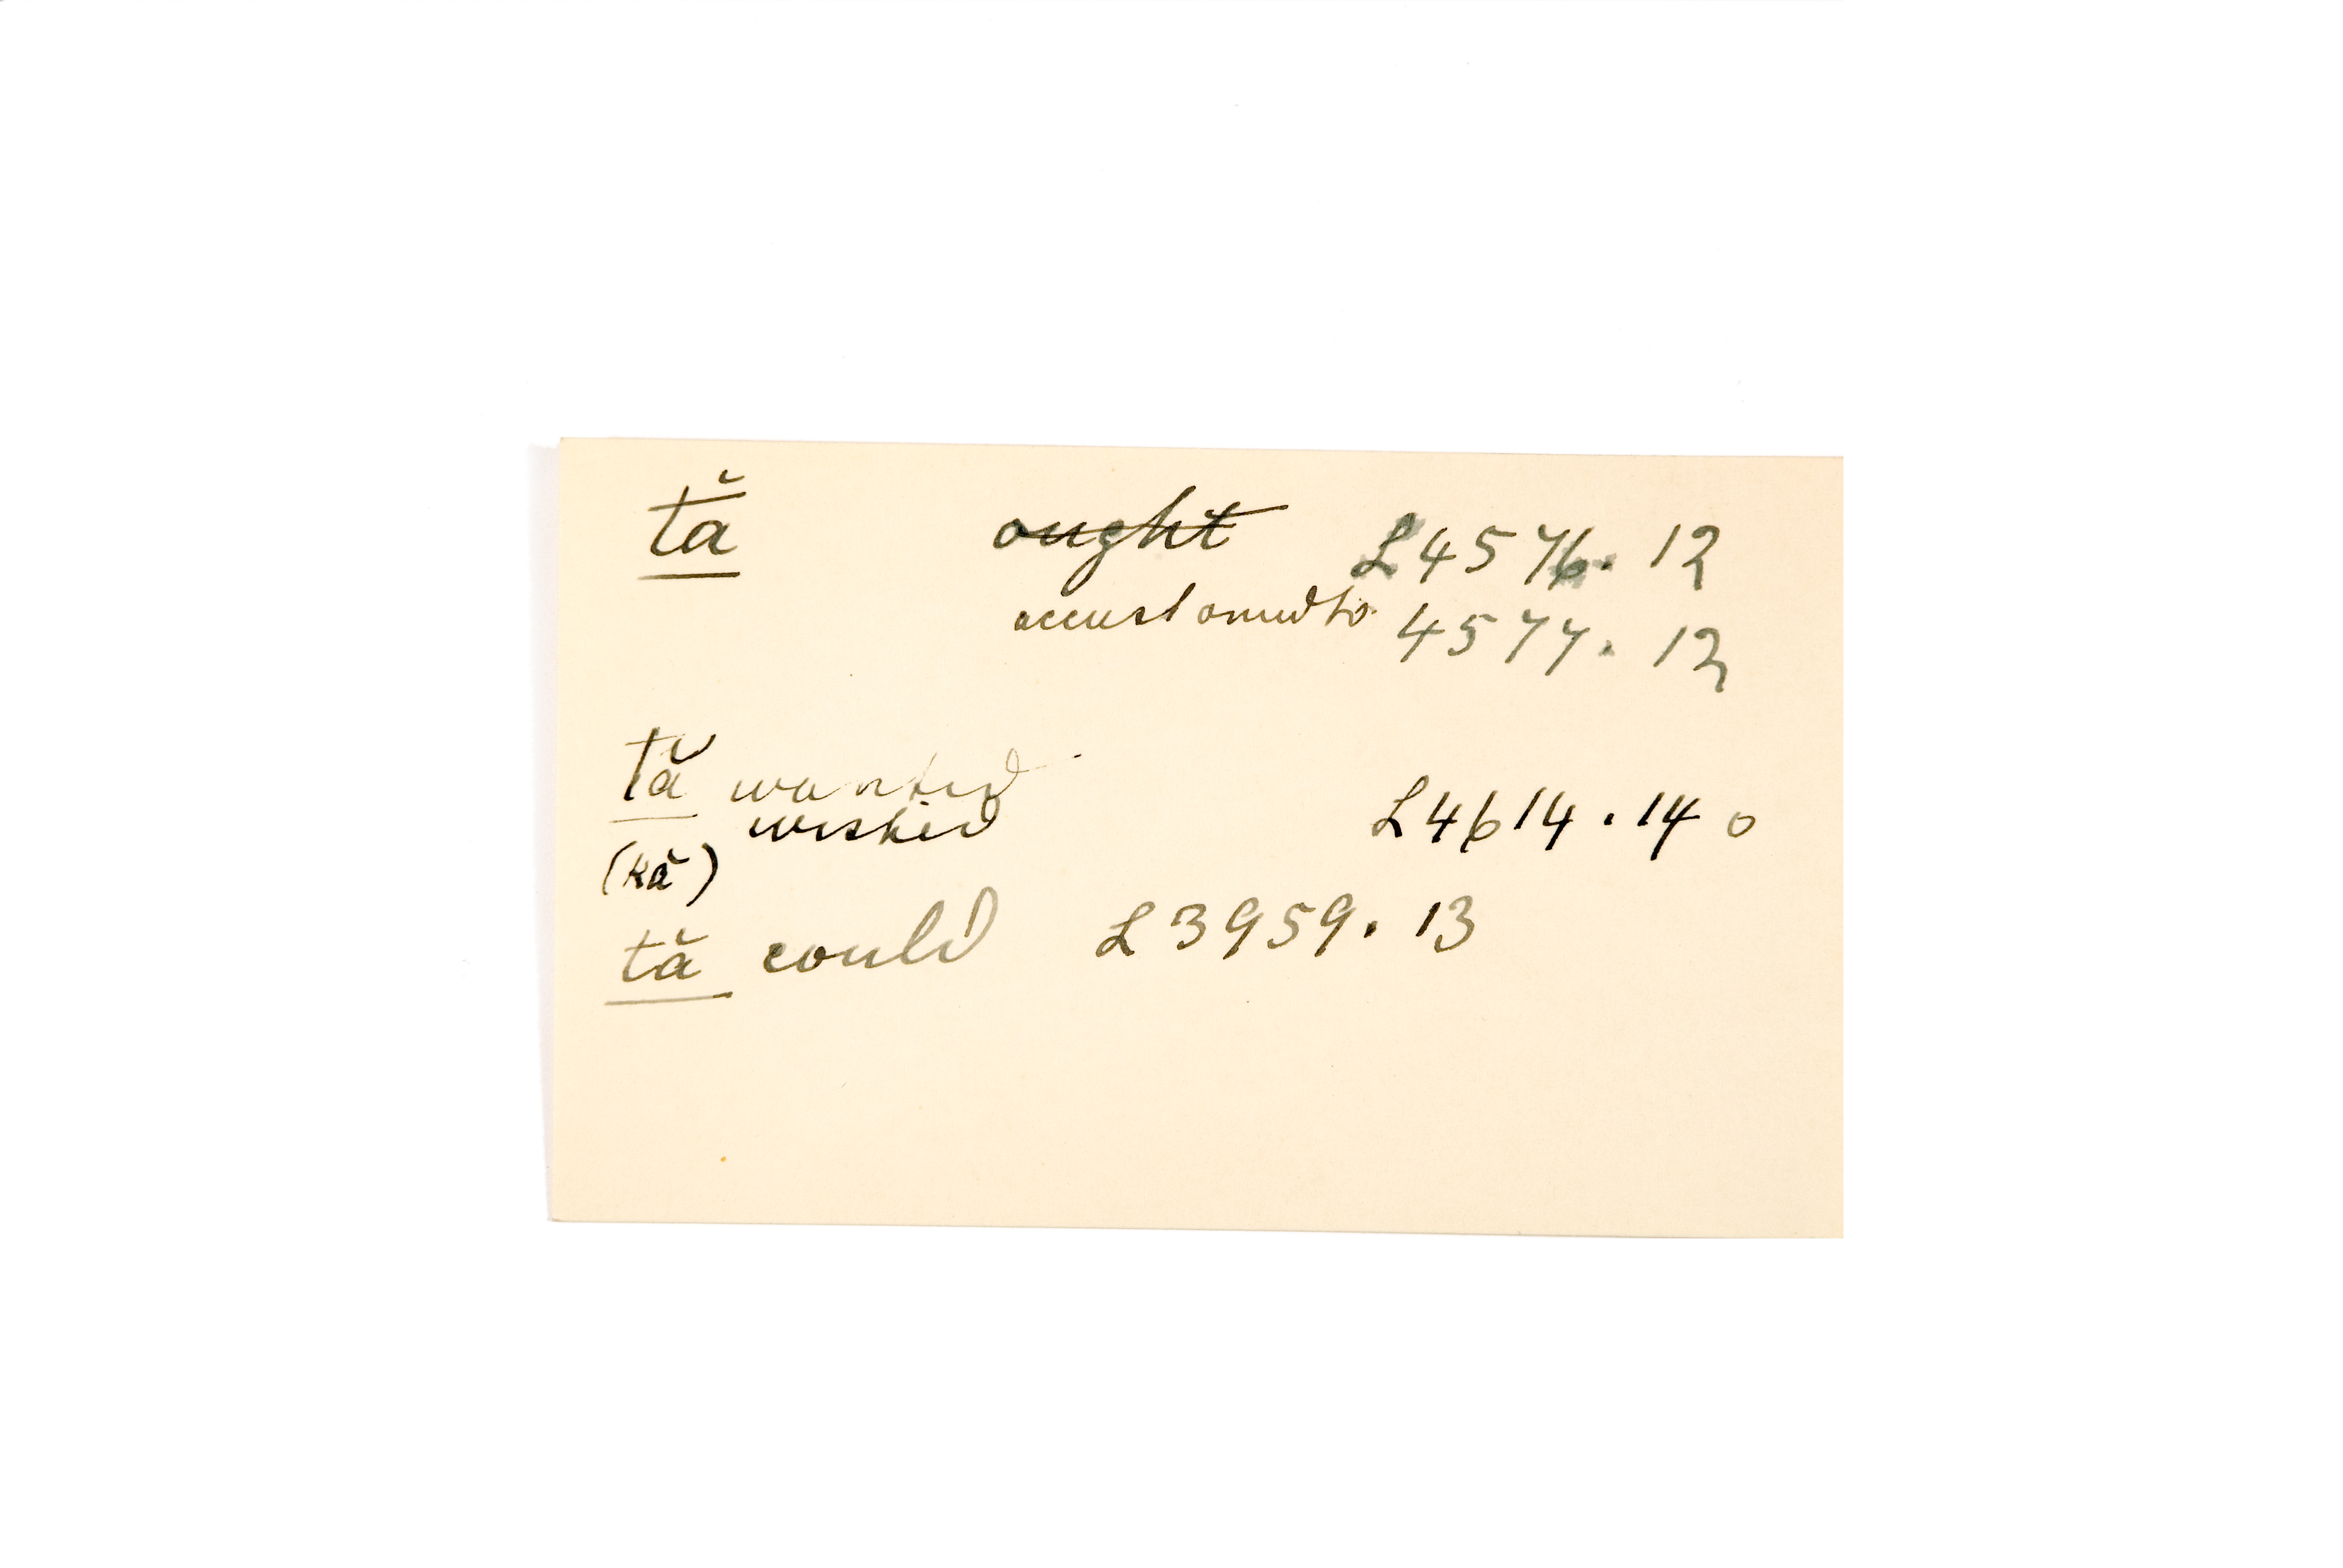 tă ought L4576. 12
accustomed to 4577. 12
tă wanted
wished L4614. 14 0
(kă)
tă could L3959. 13